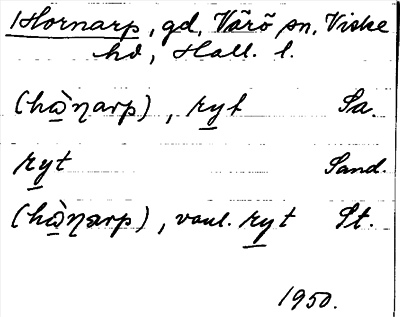 Hornarp, gd, Värö sn, Viske
hd, Hall. l.
(hὼηarp), ryt Sa.
ryt Sand.
(hὼηarp), vanl. ryt St.
1950.